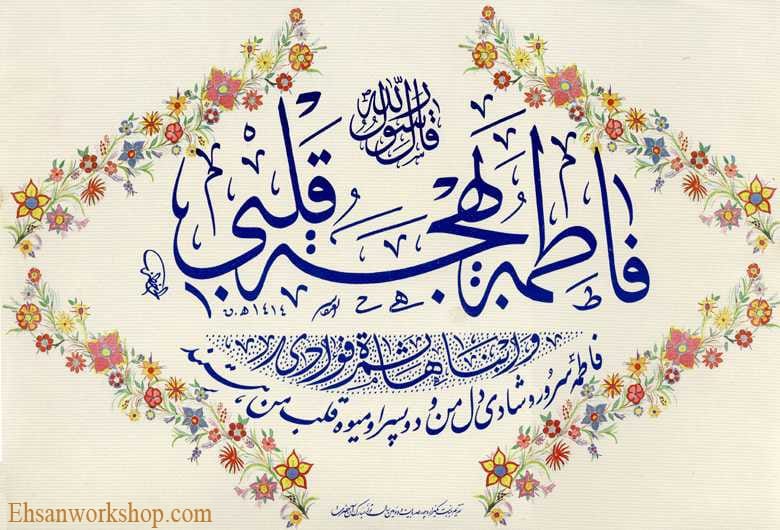 قال رسول الله
فاطمة بهجة قلبی
۱۴۱۴ ه‍.ق
وابناها ثمرة فوادی
فاطمه سرور و شادی دل من و دو پسر او میوه قلب من هستند
Ehsanworkshop.com